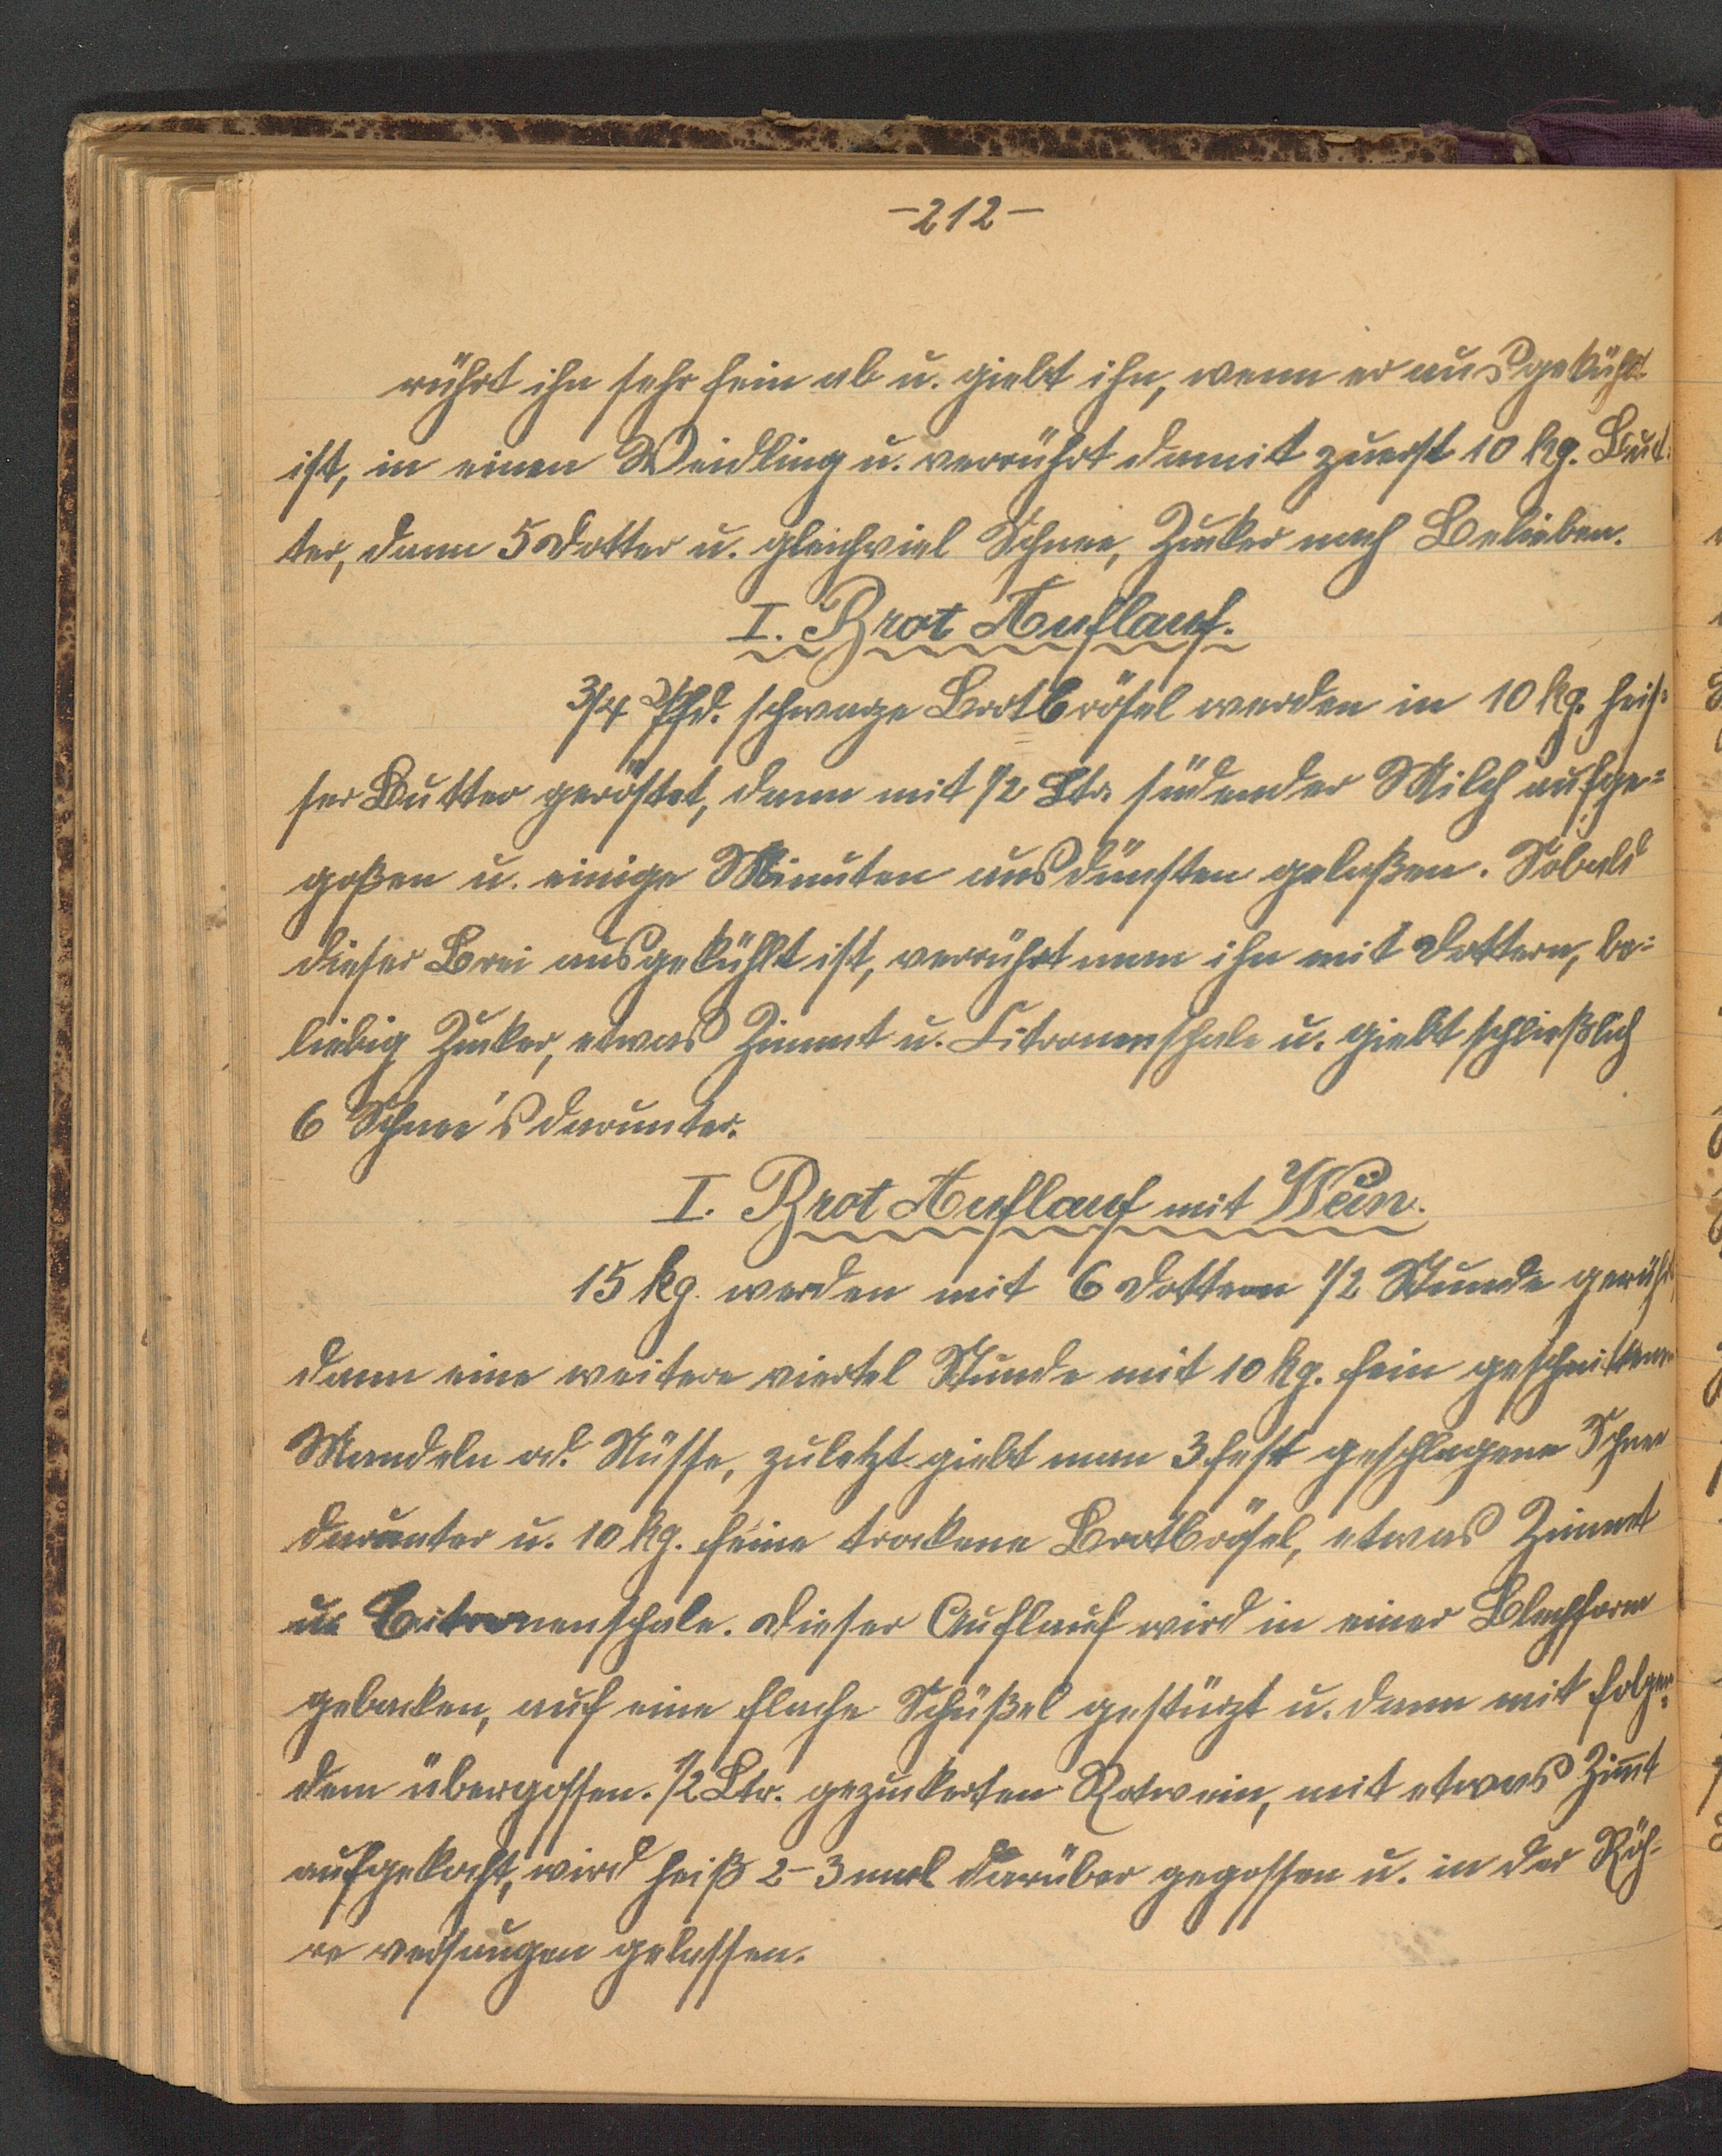 -212-
rührt ihn sehr fein ab u. giebt ihn, wenn er ausgekühlt
ist, in einen Weidling u. verrührt damit zuerst 10 kg. But-
ter, dann 5 Dotter u. gleichviel Schnee, Zucker nach Belieben.
I. Brot Auflauf.
3/4 Pfd. schwarze Brotbrösel werden in 10 kg. heis-
ser Butter geröstet, dann mit 1/2 Ltr. südender Milch aufge=
goßen u. einige Minuten ausdünsten gelaßen. Sobald
dieser Brei ausgekühlt ist, verrührt man ihn mit Dottern, be=
liebig Zucker, etwas Zimmt u. Citronenschale u. giebt schließlich
6 Schnee's darunter.
I. Brot Auflauf mit Wein.
15 kg. werden mit 6 Dottern 1/2 Stunde gerührt
dann eine weitere viertel Stunde mit 10 kg. fein geschnittenen
Mandeln od. Nüsse, zuletzt giebt man 3 fest geschlagene Schnee
darunter u. 10 kg. feine trockene Brotbrösel, etwas Zimmt
u. Citronenschale. Dieser Auflauf wird in einer Blechform
gebacken, auf eine flache Schüßel gestürzt u. dann mit folgen=
dem übergossen. 1/2 Ltr. gezuckerten Rotwein, mit etwas Zim̄t
aufgekocht, wird heiß 2-3 mal darüber gegossen u. in der Röh-
re versaugen gelassen.